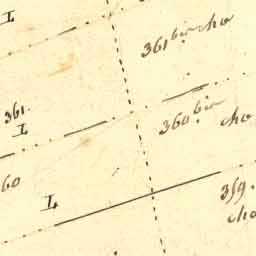 L
361 bis cho
361.
L
360 bis
cho
60
L
359.
cho